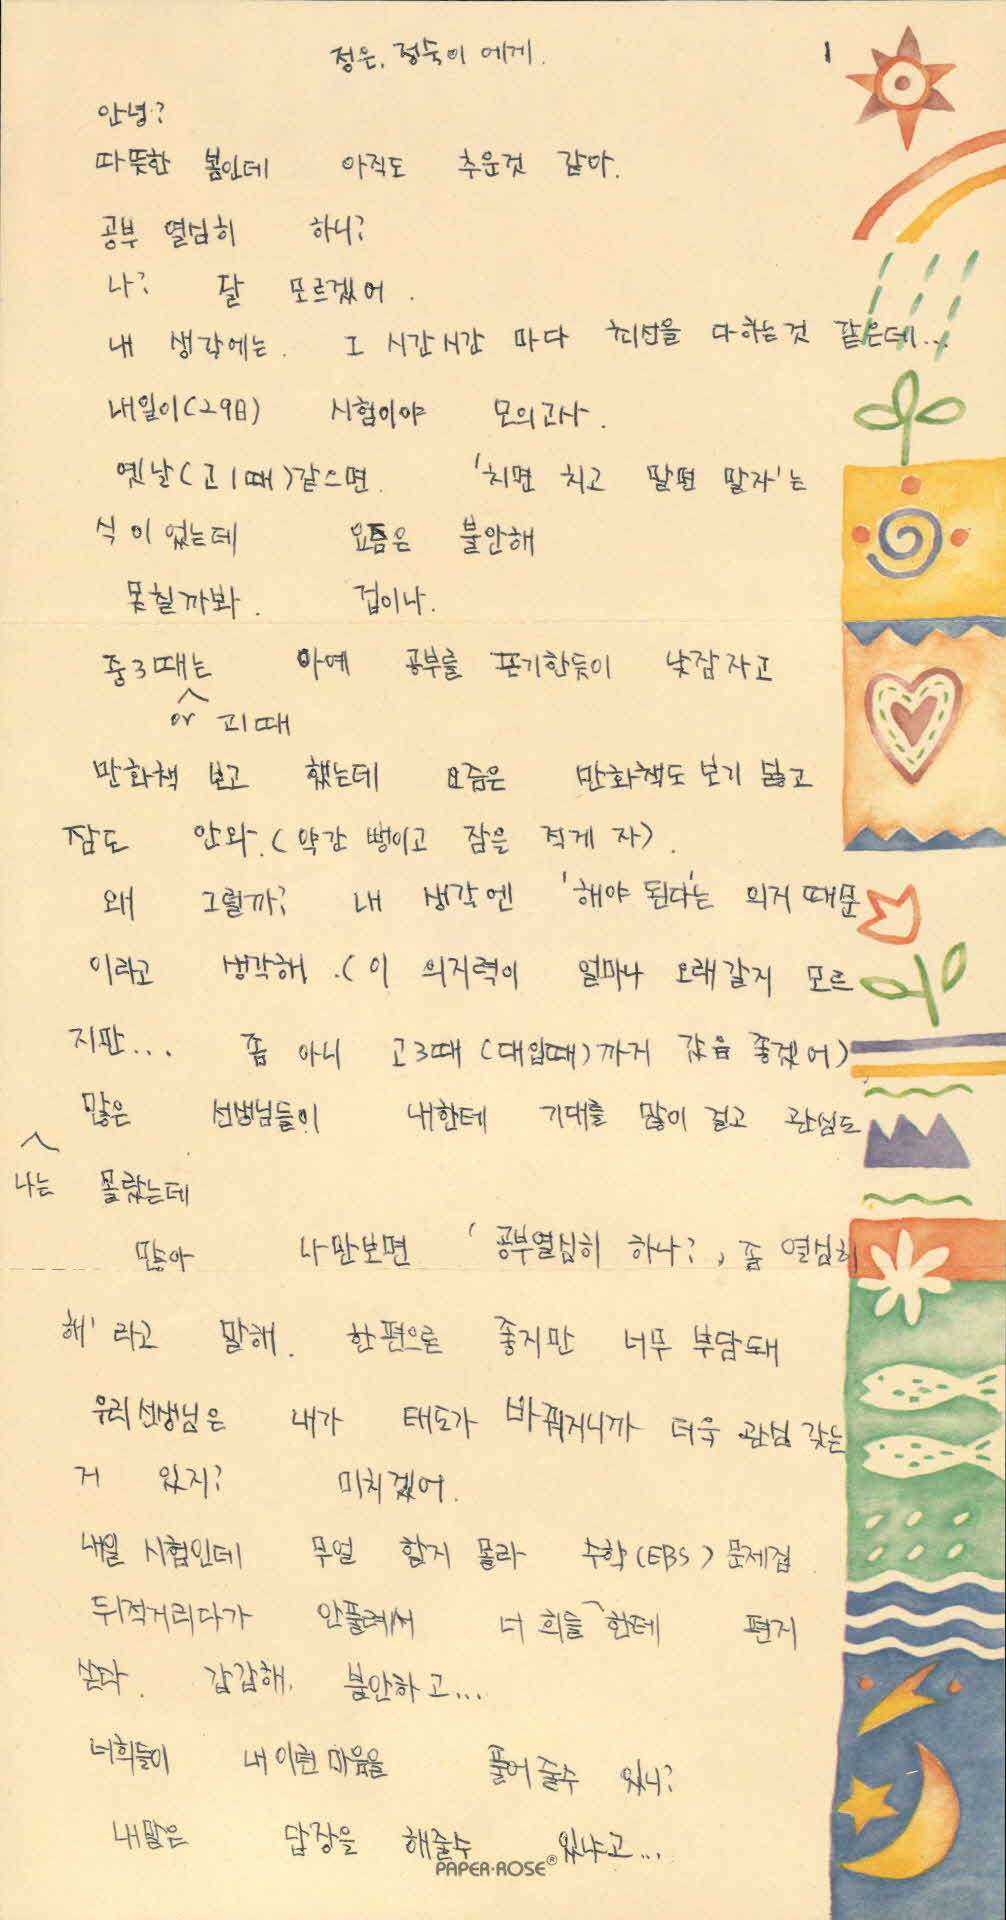 정은, 정숙이 에게. 1
안녕?
따뜻한 봄인데 아직도 추운것 같아.
공부 열심히 하니?
나? 잘 모르겠어.
내 생각에는. 그 시간시간 마다 최선을 다하는것 같은데...
내일이(29日) 시험이야 모의고사.
옛날(고1때)같으면. '치면 치고 말면 말자'는
식이었는데 요즘은 불안해
못칠까봐. 겁이나.
중3때는 아예 공부를 포기한듯이 낮잠자고
or 고1때
만화책 보고 했는데 요즘은 만화책도 보기 싫고
잠도 안와.(약간 뻥이고 잠을 적게 자).
왜 그럴까? 내 생각엔 '해야 된다'는 의지 때문
이라고 생각해.(이 의지력이 얼마나 오래갈지 모르
지만... 좀 아니 고3때(대입때)까지 갔음 좋겠어)
많은 선생님들이 내한테 기대를 많이 걸고 관심도
나는 몰랐는데
많아 나만보면 '공부열심히 하나?, 좀 열심히
해'라고 말해. 한편으론 좋지만 너무 부담돼
우리선생님은 내가 태도가 바꿔지니까 더욱 관심 갖는
거 있지? 미치겠어.
내일 시험인데 무얼 할지 몰라 수학(EBS)문제집
뒤적거리다가 안풀려서 너희들한테 편지
쓴다. 갑갑해. 불안하고...
너희들이 내이런마음을 풀어줄수 있니?
내말은 답장을 해줄수 있냐고...
PAPER·ROSE®